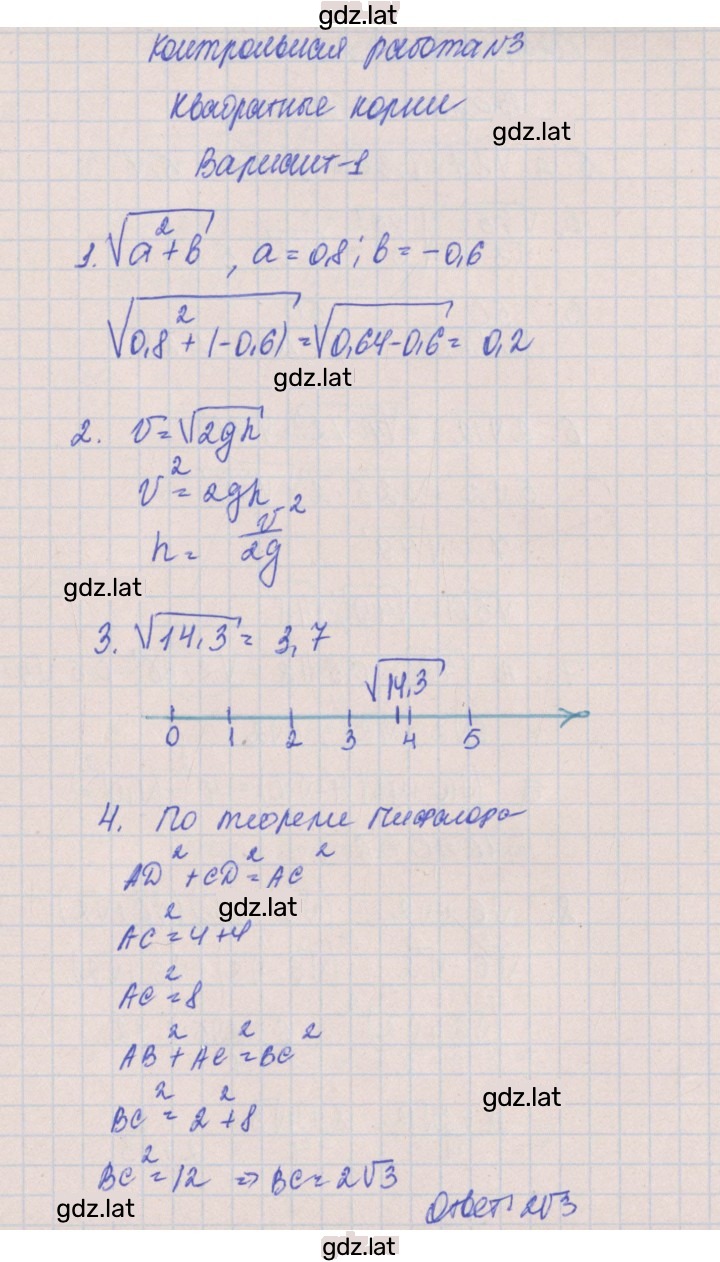 gdz.lat
Контрольная работа №3
Квадратные корни
gdz.lat
Вариант-1
1. √(a²+b) , a = 0,8; b = -0,6
√(0,8² + (-0,6)) = √(0,64-0,6) = 0,2
gdz.lat
2. v = √(2gh)
v² = 2gh
h = v²/2g
gdz.lat
3. √14,3 = 3,7
√14,3
0 1 2 3 4 5
4. По теореме Пифагора
AD² + CD² = AC²
gdz.lat
AC² = 4+4
AC² = 8
AB² + AC² = BC²
gdz.lat
BC² = 2² + 8
BC² = 12 => BC = 2√3
gdz.lat
Ответ: 2√3
gdz.lat